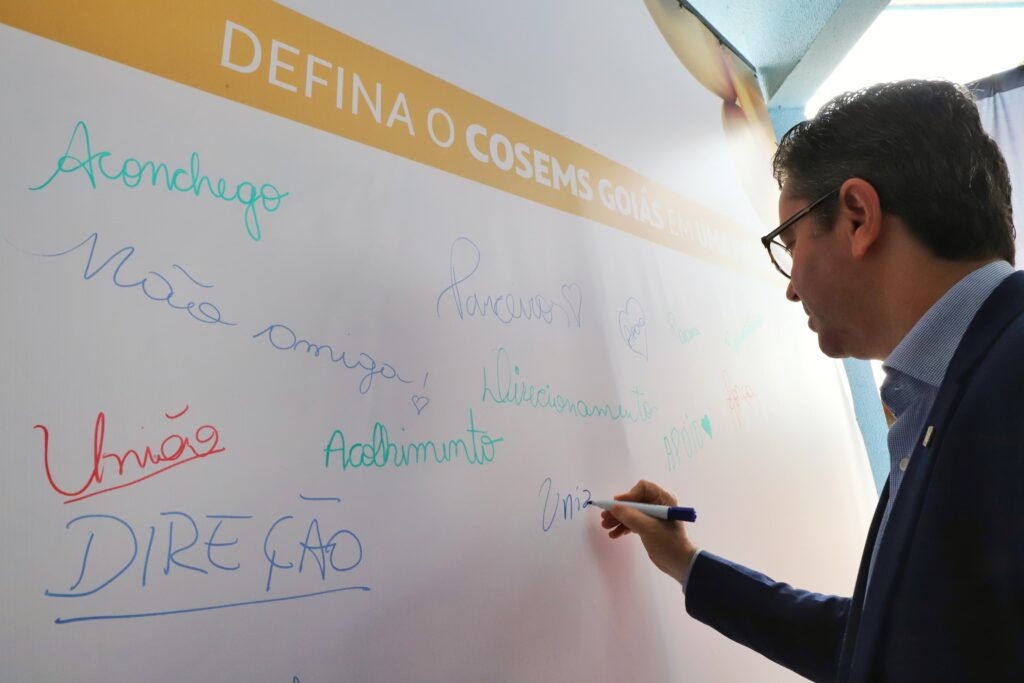 DEFINA O COSEMS GOIÁS EM UMA
Aconchego
Mão amiga!
Parceiros
Direcionamento
União
Acolhimento
APOIO
DIREÇÃO
Uniã